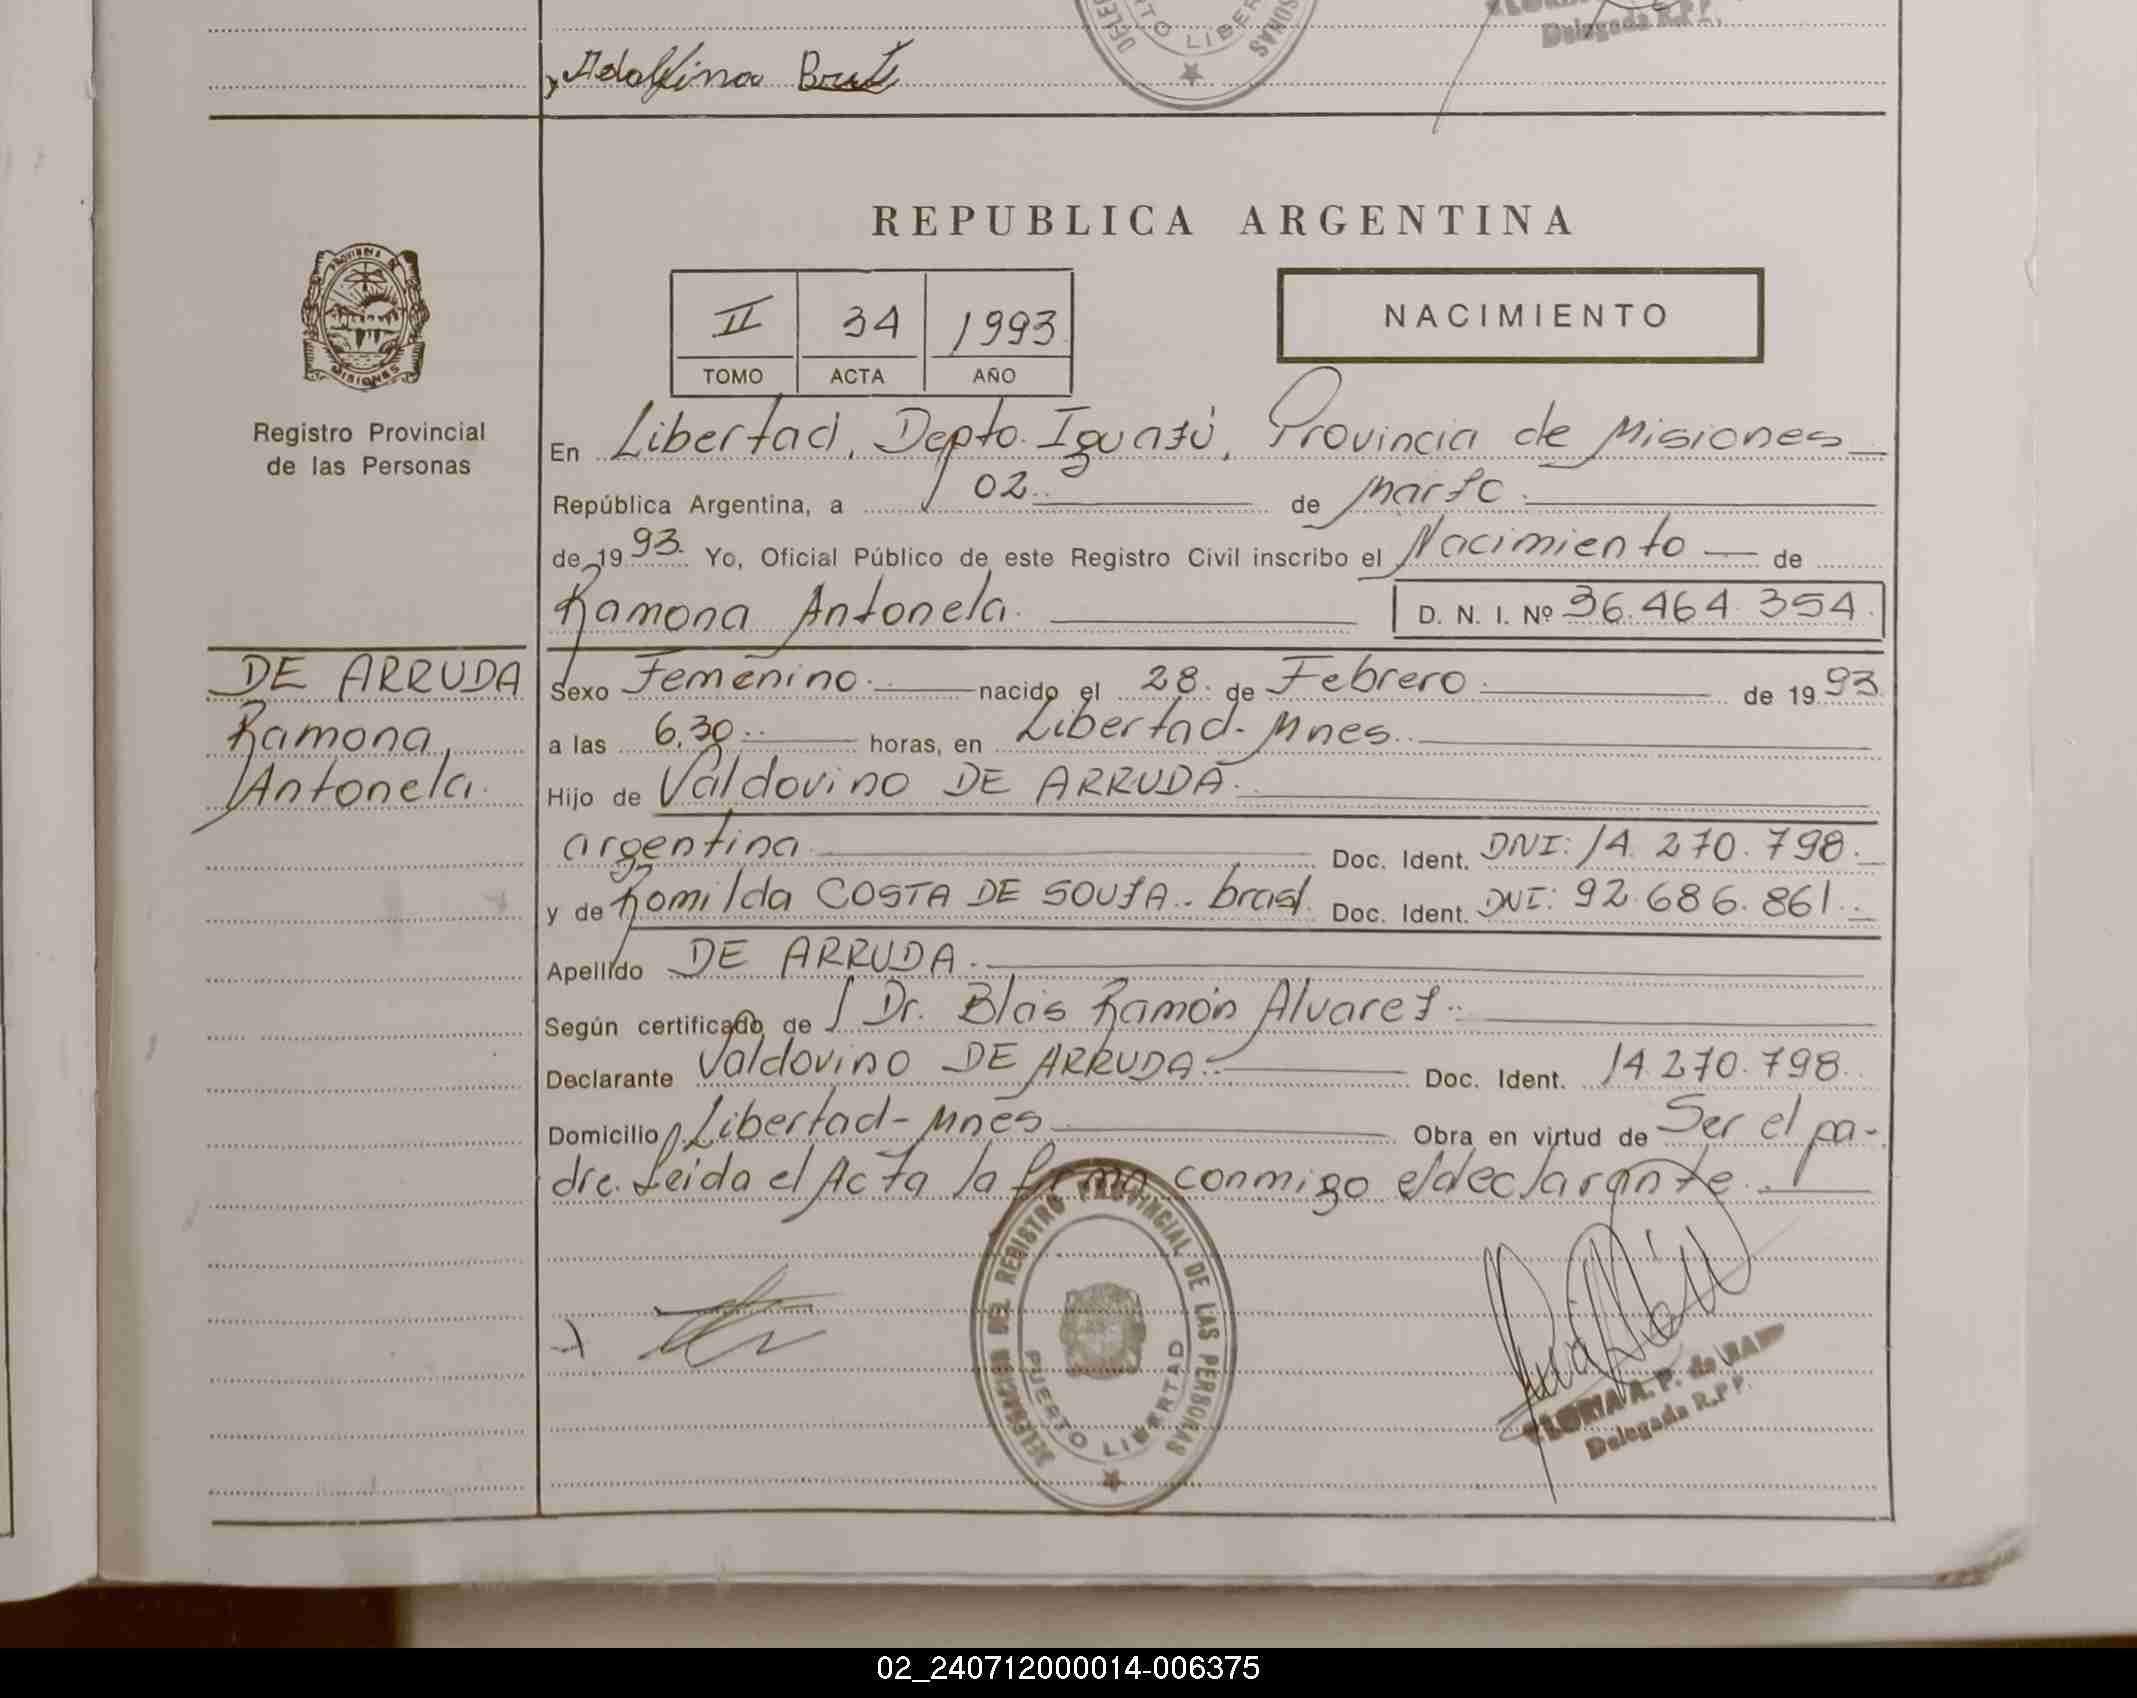 Adolfina
DELEG
PUERTO LIBER
SONAS
Delegada R.P.P.
REPUBLICA ARGENTINA
PROVINCIA DE
MISIONES
Registro Provincial
de las Personas
II 34 1993
TOMO ACTA AÑO
NACIMIENTO
En Libertad, Depto. Iguazú, Provincia de Misiones
República Argentina, a 02 de Marzo
de 1993 Yo, Oficial Público de este Registro Civil inscribo el Nacimiento de
Ramona Antonela. D. N. I. Nº 36.464.354
DE ARRUDA
Ramona
Antonela
Sexo Femenino. nacido el 28. de Febrero de 1993
a las 6,30 horas, en Libertad-Mnes.
Hijo de Valdovino DE ARRUDA.
argentina Doc. Ident. DNI: 14.270.798.
y de Romilda COSTA DE SOUZA.. brasl. Doc. Ident. DNI: 92.686.861.
Apellido DE ARRUDA.
Según certificado de Dr. Blás Ramón Alvarez.
Declarante Valdovino DE ARRUDA. Doc. Ident. 14.270.798.
Domicilio Libertad-Mnes Obra en virtud de Ser el pa-
dre. Leida el Acta la firma conmigo el declarante.
DELEGACION DEL REGISTRO PROVINCIAL DE LAS PERSONAS
PUERTO LIBERTAD
GLORIA A. P. de
Delegada R.P.P.
02_240712000014-006375